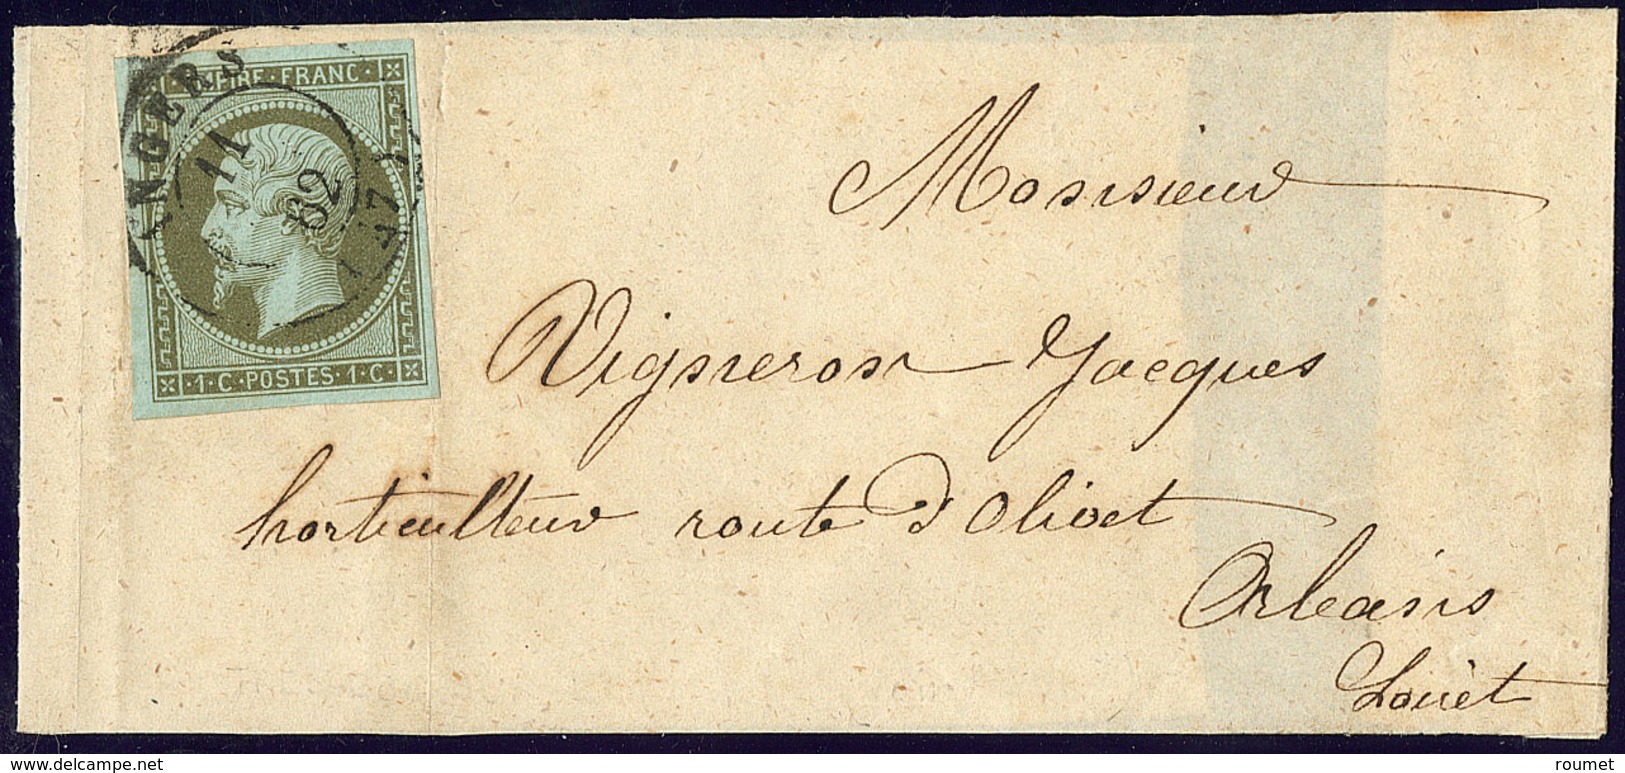 EMPIRE · FRANC ·
ANGERS
11
62
· 1 · C · POSTES · 1 · C ·
Monsieur
Vigneron Jacques
horticulteur route d'Olivet
Orleans
Loiret
delcampe.net
roumet